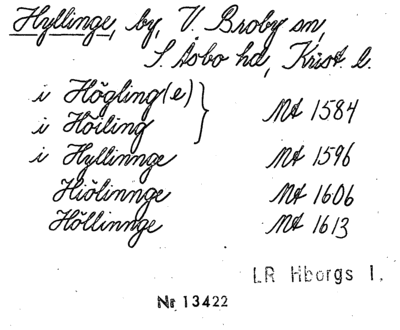 Hyllinge, by, V. Broby sn,
S. Åsbo hd, Krist. l.
i Högling(e)
i Höiling } Mt 1584
i Hyllinnge Mt 1596
Hiölinnge Mt 1606
Höllinnge Mt 1613
LR Hborgs l.
Nr 13422